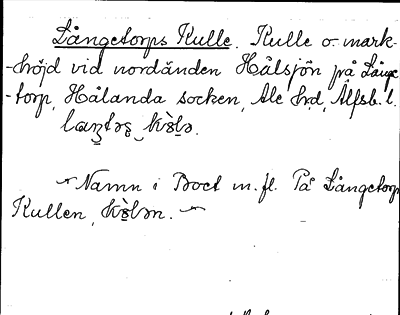 Långetorps Kulle. Kulle o. mark-
-höjd vid nordänden Hålsjön på Långe
-torp, Hålanda socken, Ale hrd, Älfsb. l.
Namn i Boet m. fl. På Långetorps
Kullen,